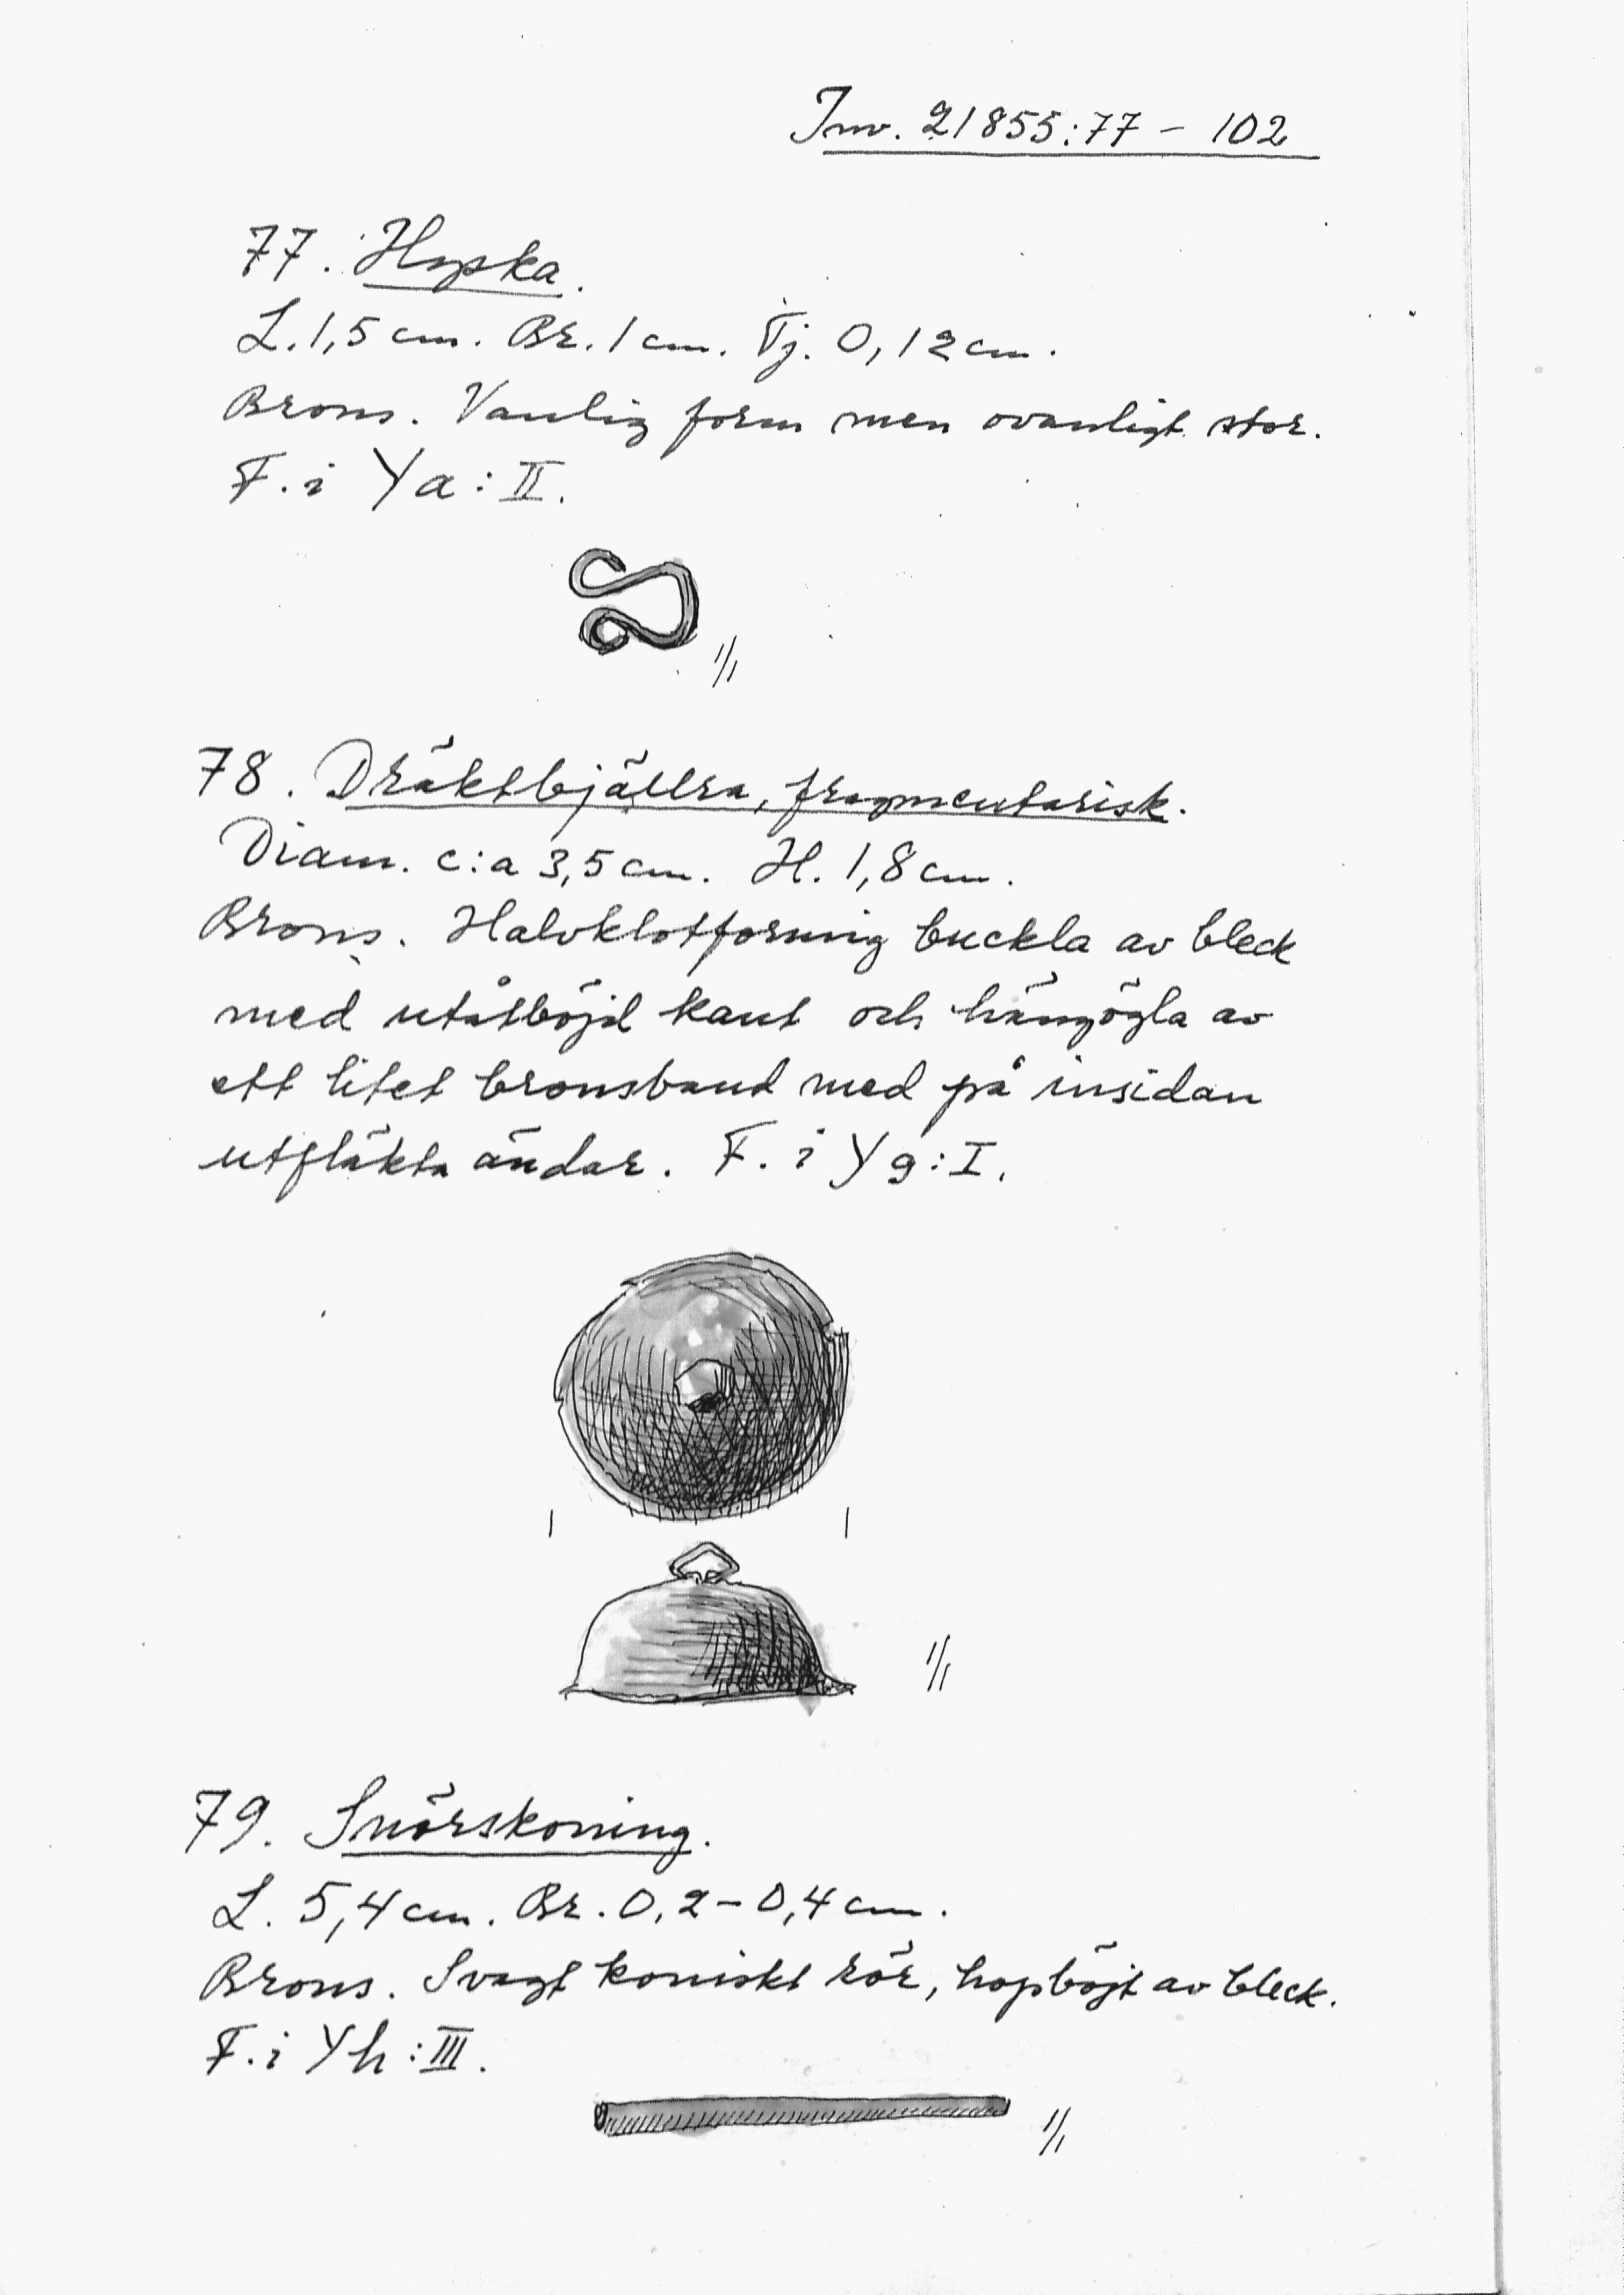 Inv. 21855:77 – 102
77. Hyska.
L. 1,5 cm. Br. 1 cm. Tj. 0,12 cm.
Brons. Vanlig form men ovanligt stor.
F. i Ya:II.
1/1
78. Dräktbjällra, fragmentarisk.
Diam. c:a 3,5 cm. H. 1,8 cm.
Brons. Halvklotformig buckla av bleck
med utåtböjd kant och hängögla av
ett litet bronsband med på insidan
utfläkta ändar. F. i Yg:I.
1/1
79. Snörskoning.
L. 5,4 cm. Br. 0,2 – 0,4 cm.
Brons. Svagt koniskt rör, hopböjt av bleck.
F. i Yh:III.
1/1